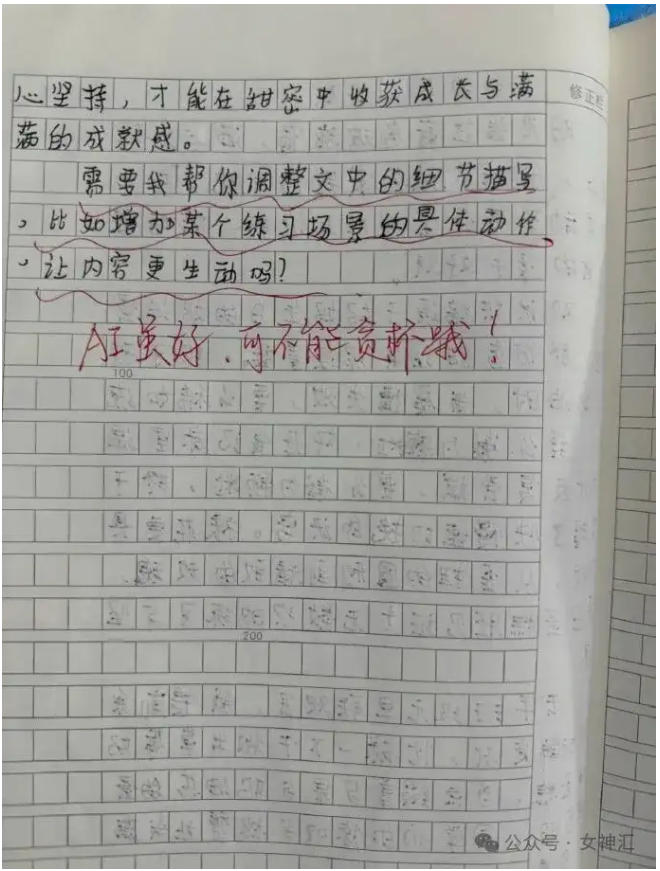 心坚持，才能在甜密中收获成长与满
满的成就感。
需要我帮你调整文中的细节描写
，比如增加某个练习场景的具体动作
，让内容更生动吗？
AI虽好，可不能贪杯哦！
100
200
修正栏
公众号·女神汇